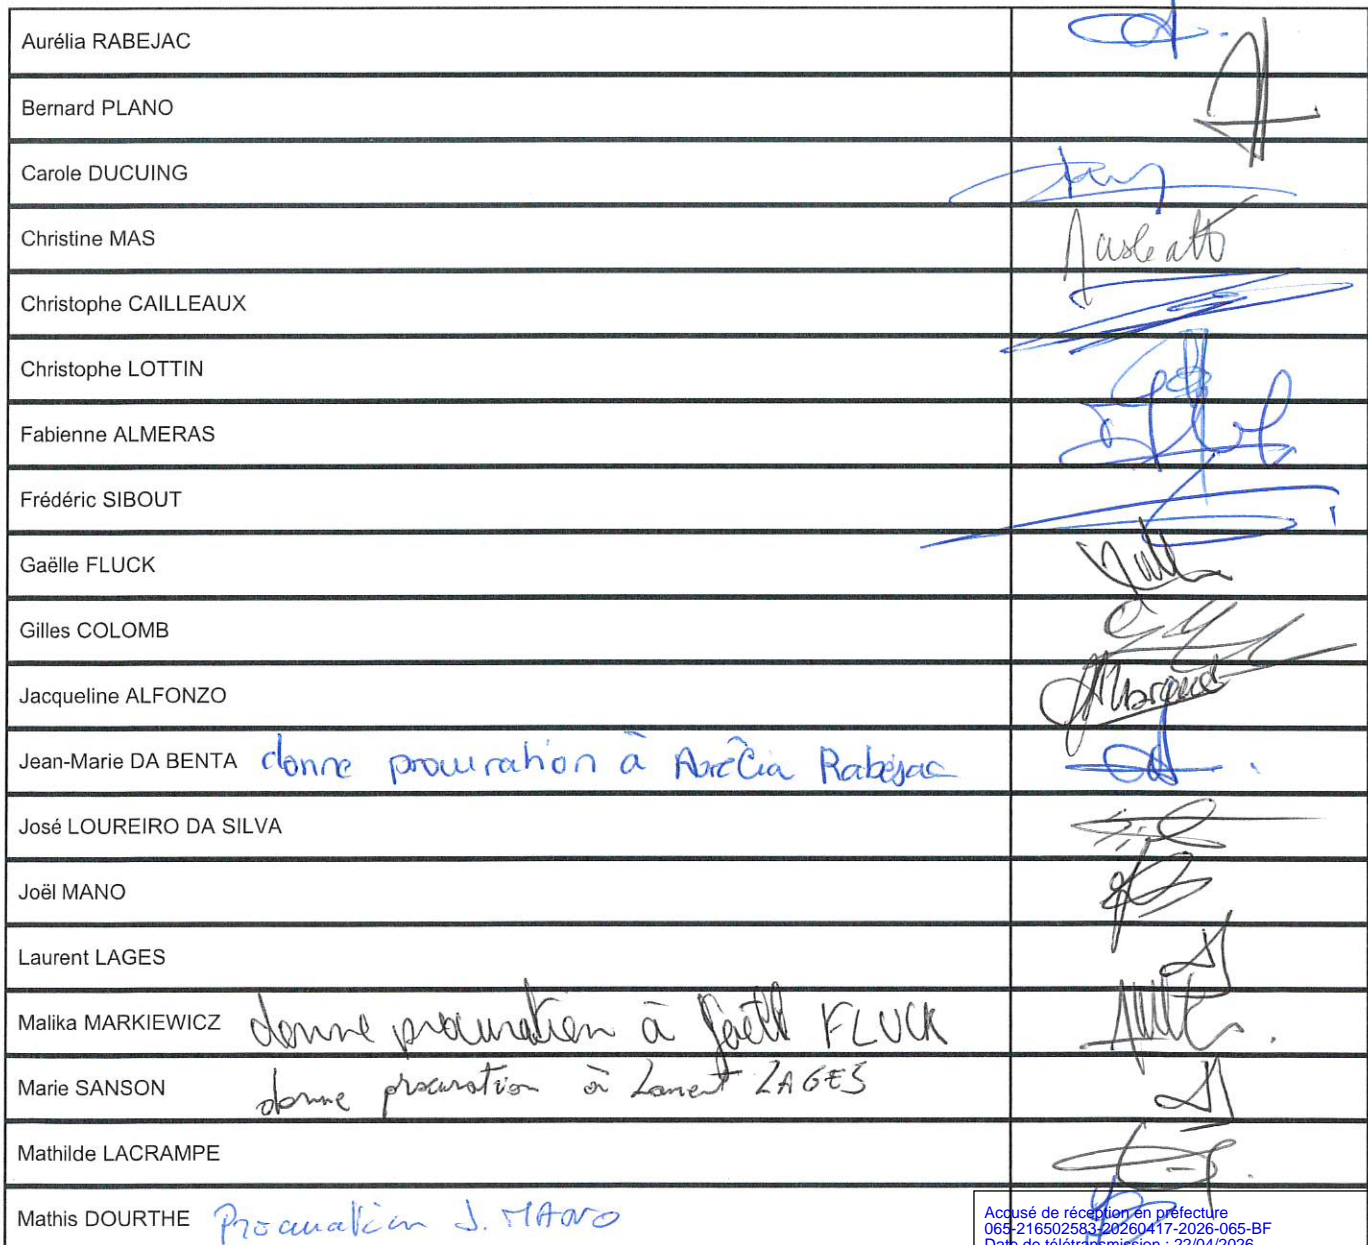 Aurélia RABEJAC
Bernard PLANO
Carole DUCUING
Christine MAS
Christophe CAILLEAUX
Christophe LOTTIN
Fabienne ALMERAS
Frédéric SIBOUT
Gaëlle FLUCK
Gilles COLOMB
Jacqueline ALFONZO
Jean-Marie DA BENTA donne procuration à Aurélia Rabejac
José LOUREIRO DA SILVA
Joël MANO
Laurent LAGES
Malika MARKIEWICZ donne procuration à Gaëll FLUCK
Marie SANSON donne procuration à Laurent LAGES
Mathilde LACRAMPE
Mathis DOURTHE Procuration J. MANO
Accusé de réception en préfecture
065-216502583-20260417-2026-065-BF
Date de télétransmission : 22/04/2026